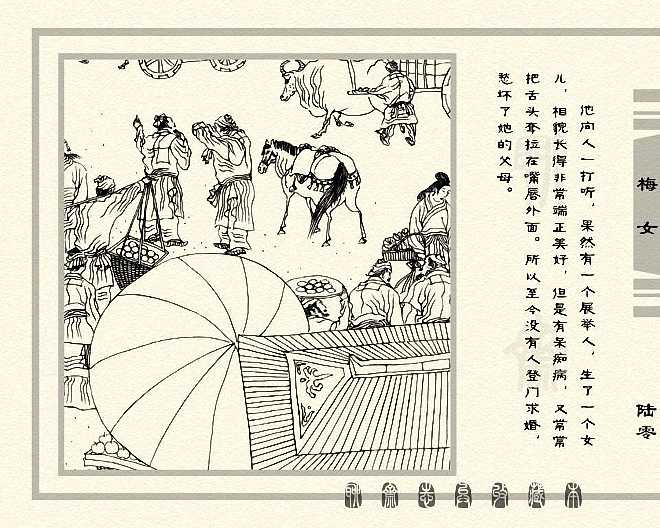 他向人一打听，果然有一个展举人，生了一个女
儿，相貌长得非常端正美好，但是有呆痴病，又常常
把舌头牵拉在嘴唇外面。所以至今没有人登门求婚，
愁坏了她的父母。
梅女
陆零